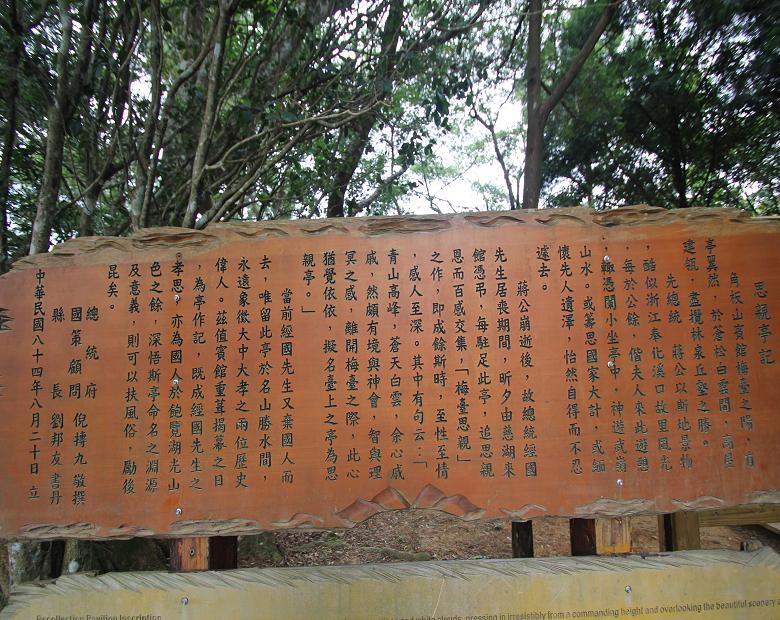 思親亭記
角板山賓館梅臺之陽，有
亭翼然，於蒼松白雲間，高屋
建瓴，盡攬林泉丘壑之勝。
先總統　蔣公以斯地景物
，酷似浙江奉化溪口故里風光
，每於公餘，偕夫人來此遊憩
，輒憑闌小坐亭中，神遊武嶺
山水。或籌思國家大計，或緬
懷先人遺澤，怡然自得而不忍
遽去。
蔣公崩逝後，故總統經國
先生居喪期間，昕夕由慈湖來
館憑弔，每駐足此亭，追思親
恩而百感交集，「梅臺思親」
之作，即成餘斯時，至性至情
，感人至深。其中有句云：「
青山高峰，蒼天白雲，余心戚
戚，然頗有境與神會，智與理
冥之感，離開梅臺之際，此心
猶覺依依，擬名臺上之亭為思
親亭。」
當前經國先生又棄國人而
去，唯留此亭於名山勝水間，
永遠象徵大中大孝之兩位歷史
偉人。茲值賓館重葺揭幕之日
，為亭作記，既成經國先生之
孝思，亦為國人於飽覽湖光山
色之餘，深悟斯亭命名之淵源
及意義，則可以扶風俗，勵後
昆矣。
總統府
國策顧問　倪摶九　敬撰
縣　長　劉邦友　書丹
中華民國八十四年八月二十日　立
Recollection Pavilion Inscription
and white clouds, pressing in irresistibly from a commanding height and overlooking the beautiful scenery